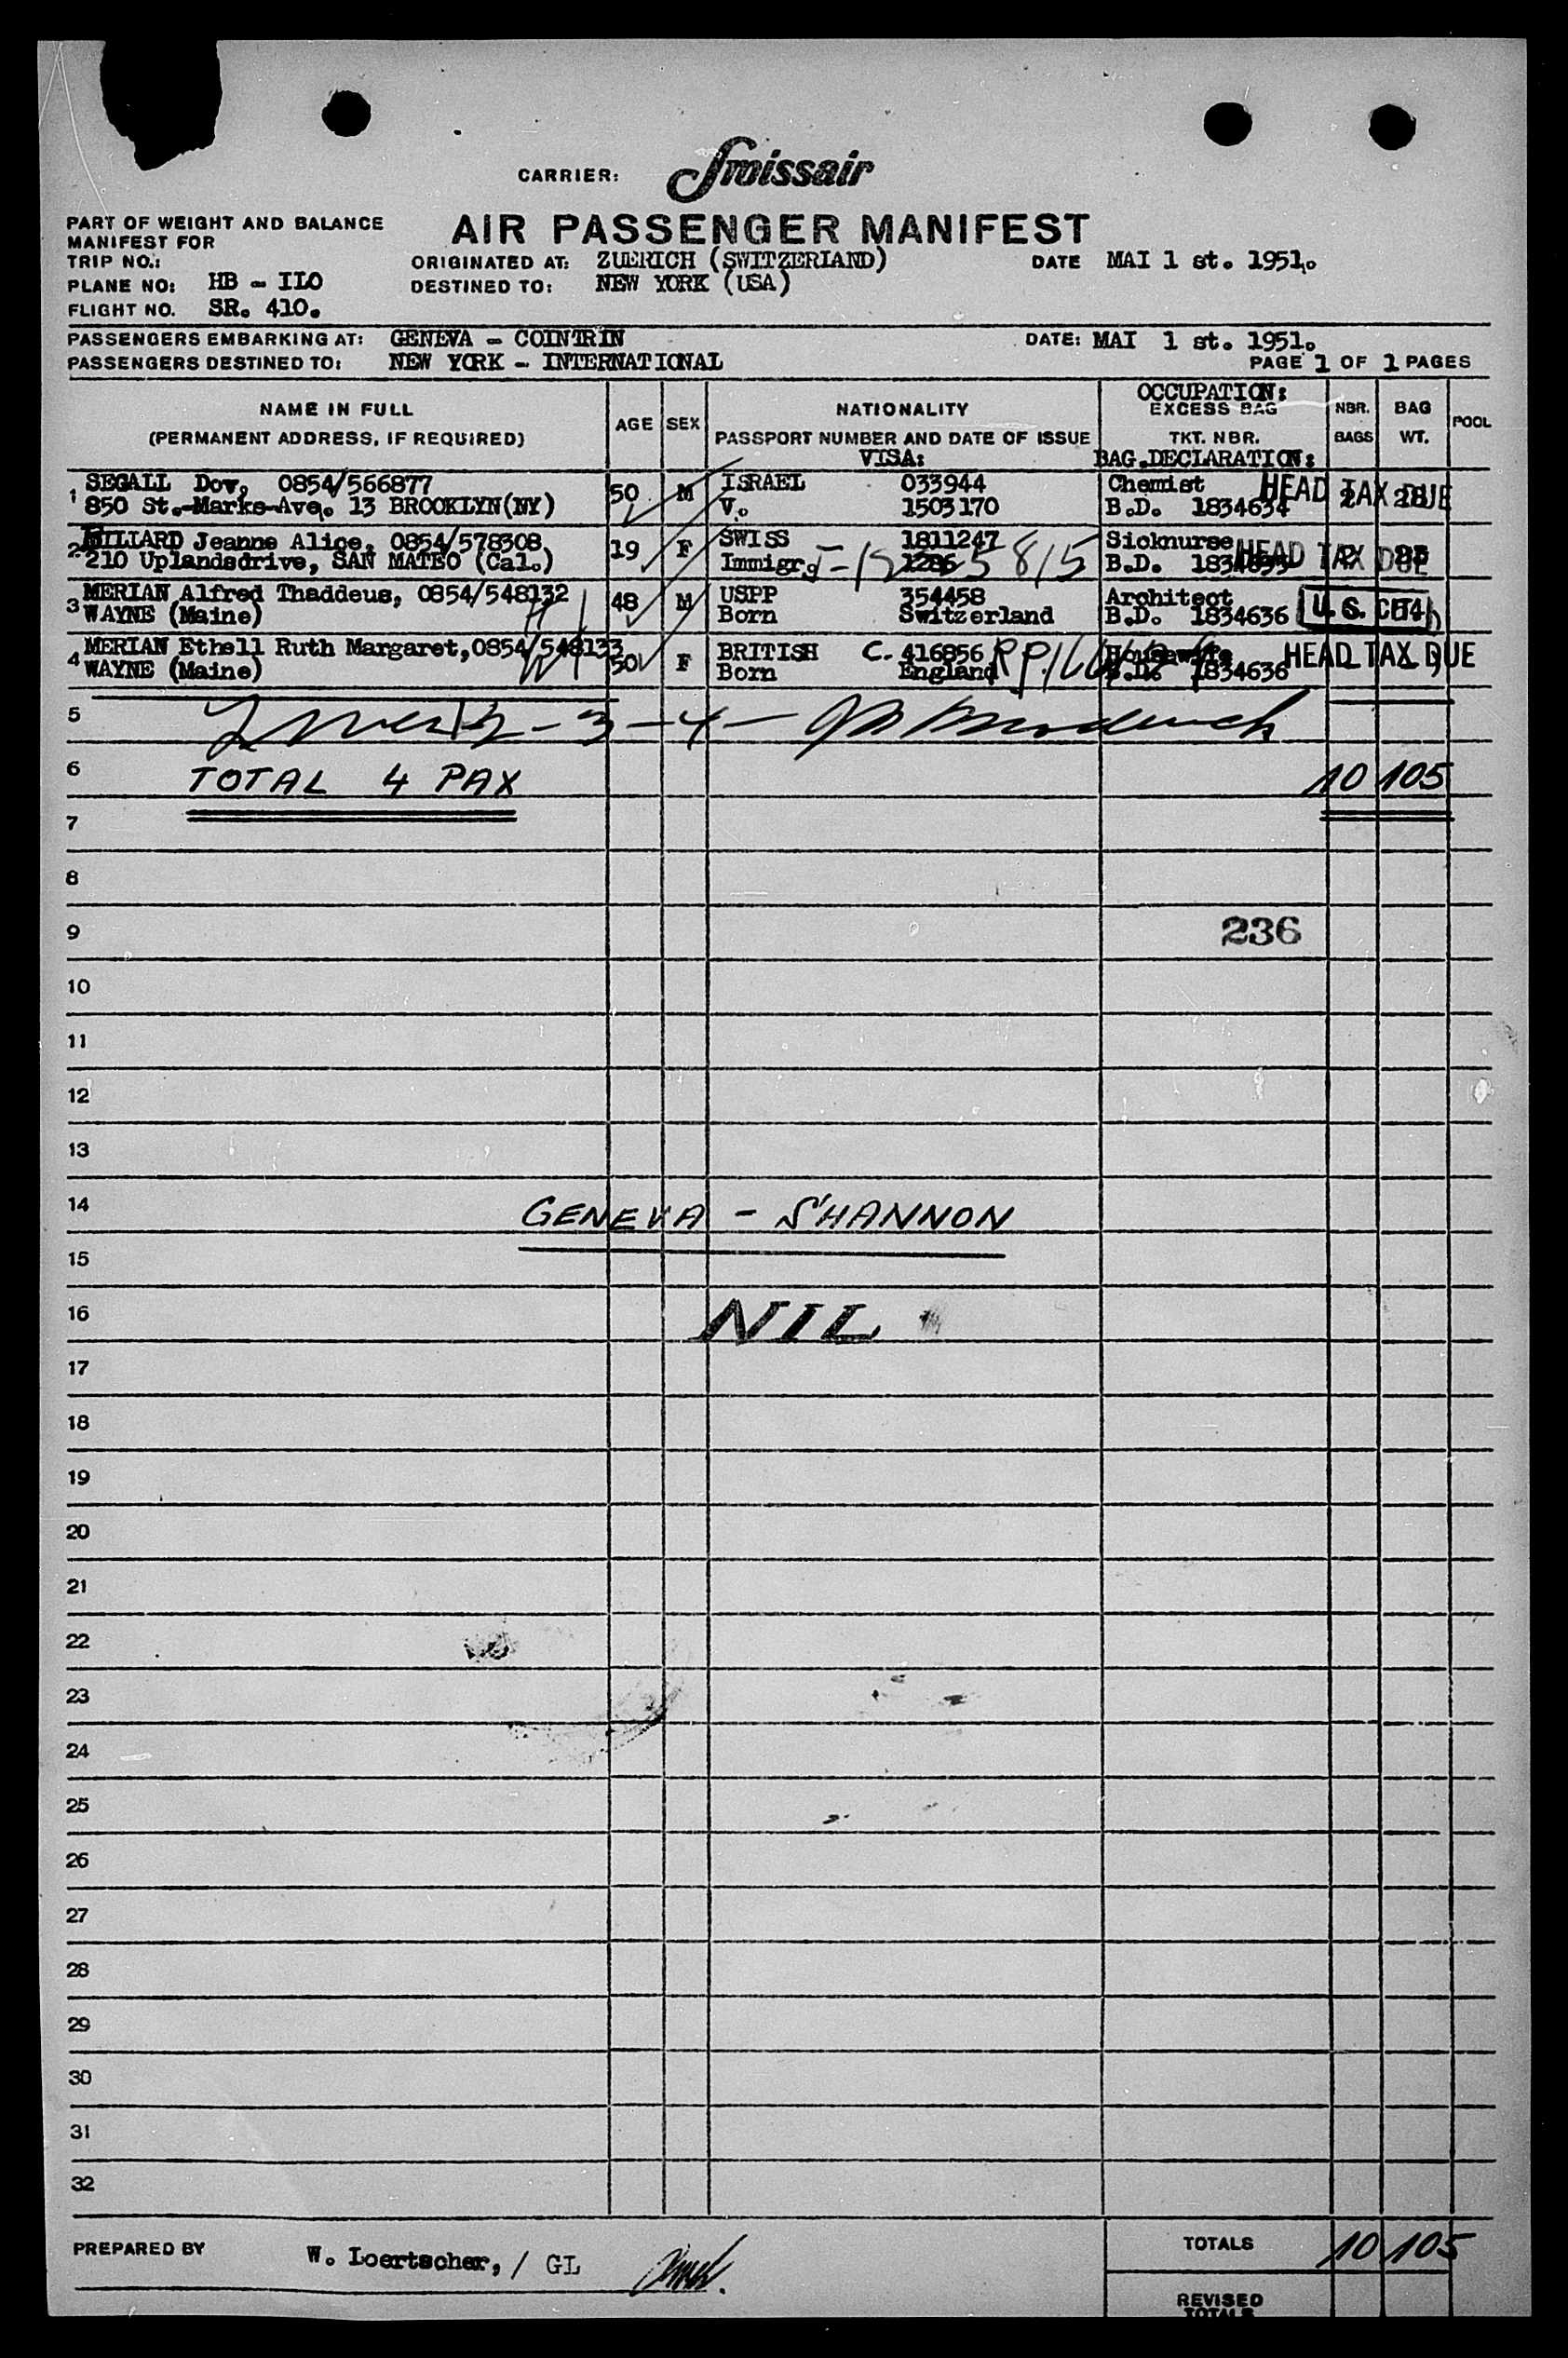 CARRIER: Swissair
PART OF WEIGHT AND BALANCE
MANIFEST FOR
AIR PASSENGER MANIFEST
TRIP NO.:
ORIGINATED AT: ZUERICH (SWITZERIAND) DATE MAI 1 st. 1951.
PLANE NO: HB - ILO DESTINED TO: NEW YORK (USA)
FLIGHT NO. SR. 410.
PASSENGERS EMBARKING AT: GENEVA - COINTRIN DATE: MAI 1 st. 1951.
PASSENGERS DESTINED TO: NEW YORK - INTERNATIONAL PAGE 1 OF 1 PAGES
OCCUPATION:
NAME IN FULL AGE SEX NATIONALITY EXCESS BAG NBR. BAG POOL
(PERMANENT ADDRESS, IF REQUIRED) PASSPORT NUMBER AND DATE OF ISSUE TKT. NBR. BAGS WT.
VISA: BAG.DECLARATION:
1 SEGALL Dov, 0854/566877 50 M ISRAEL 033944 Chemist HEAD TAX DUE
850 St.-Marks-Ave. 13 BROOKLYN(NY) V. 1503170 B.D. 1834634 2 28
2 Jeanne Alice, 0854/578308 19 F SWISS 1811247 Sicknurse HEAD TAX DUE
210 Uplandsdrive, SAN MATEO (Cal.) Immigr. 1286 B.D. 1834635 2
3 MERIAN Alfred Thaddeus, 0854/548132 48 M USPP 354458 Architect
WAYNE (Maine) Born Switzerland B.D. 1834636 U.S. CIT
4 MERIAN Ethell Ruth Margaret,0854/548133 50 F BRITISH C. 416856 Housewife HEAD TAX DUE
WAYNE (Maine) Born England B.D. 1834636
5
6 TOTAL 4 PAX 10 105
7
8
9 236
10
11
12
13
14 GENEVA - SHANNON
15
16 NIL
17
18
19
20
21
22
23
24
25
26
27
28
29
30
31
32
PREPARED BY W. Loertscher, / GL TOTALS 10 105
REVISED
TOTALS